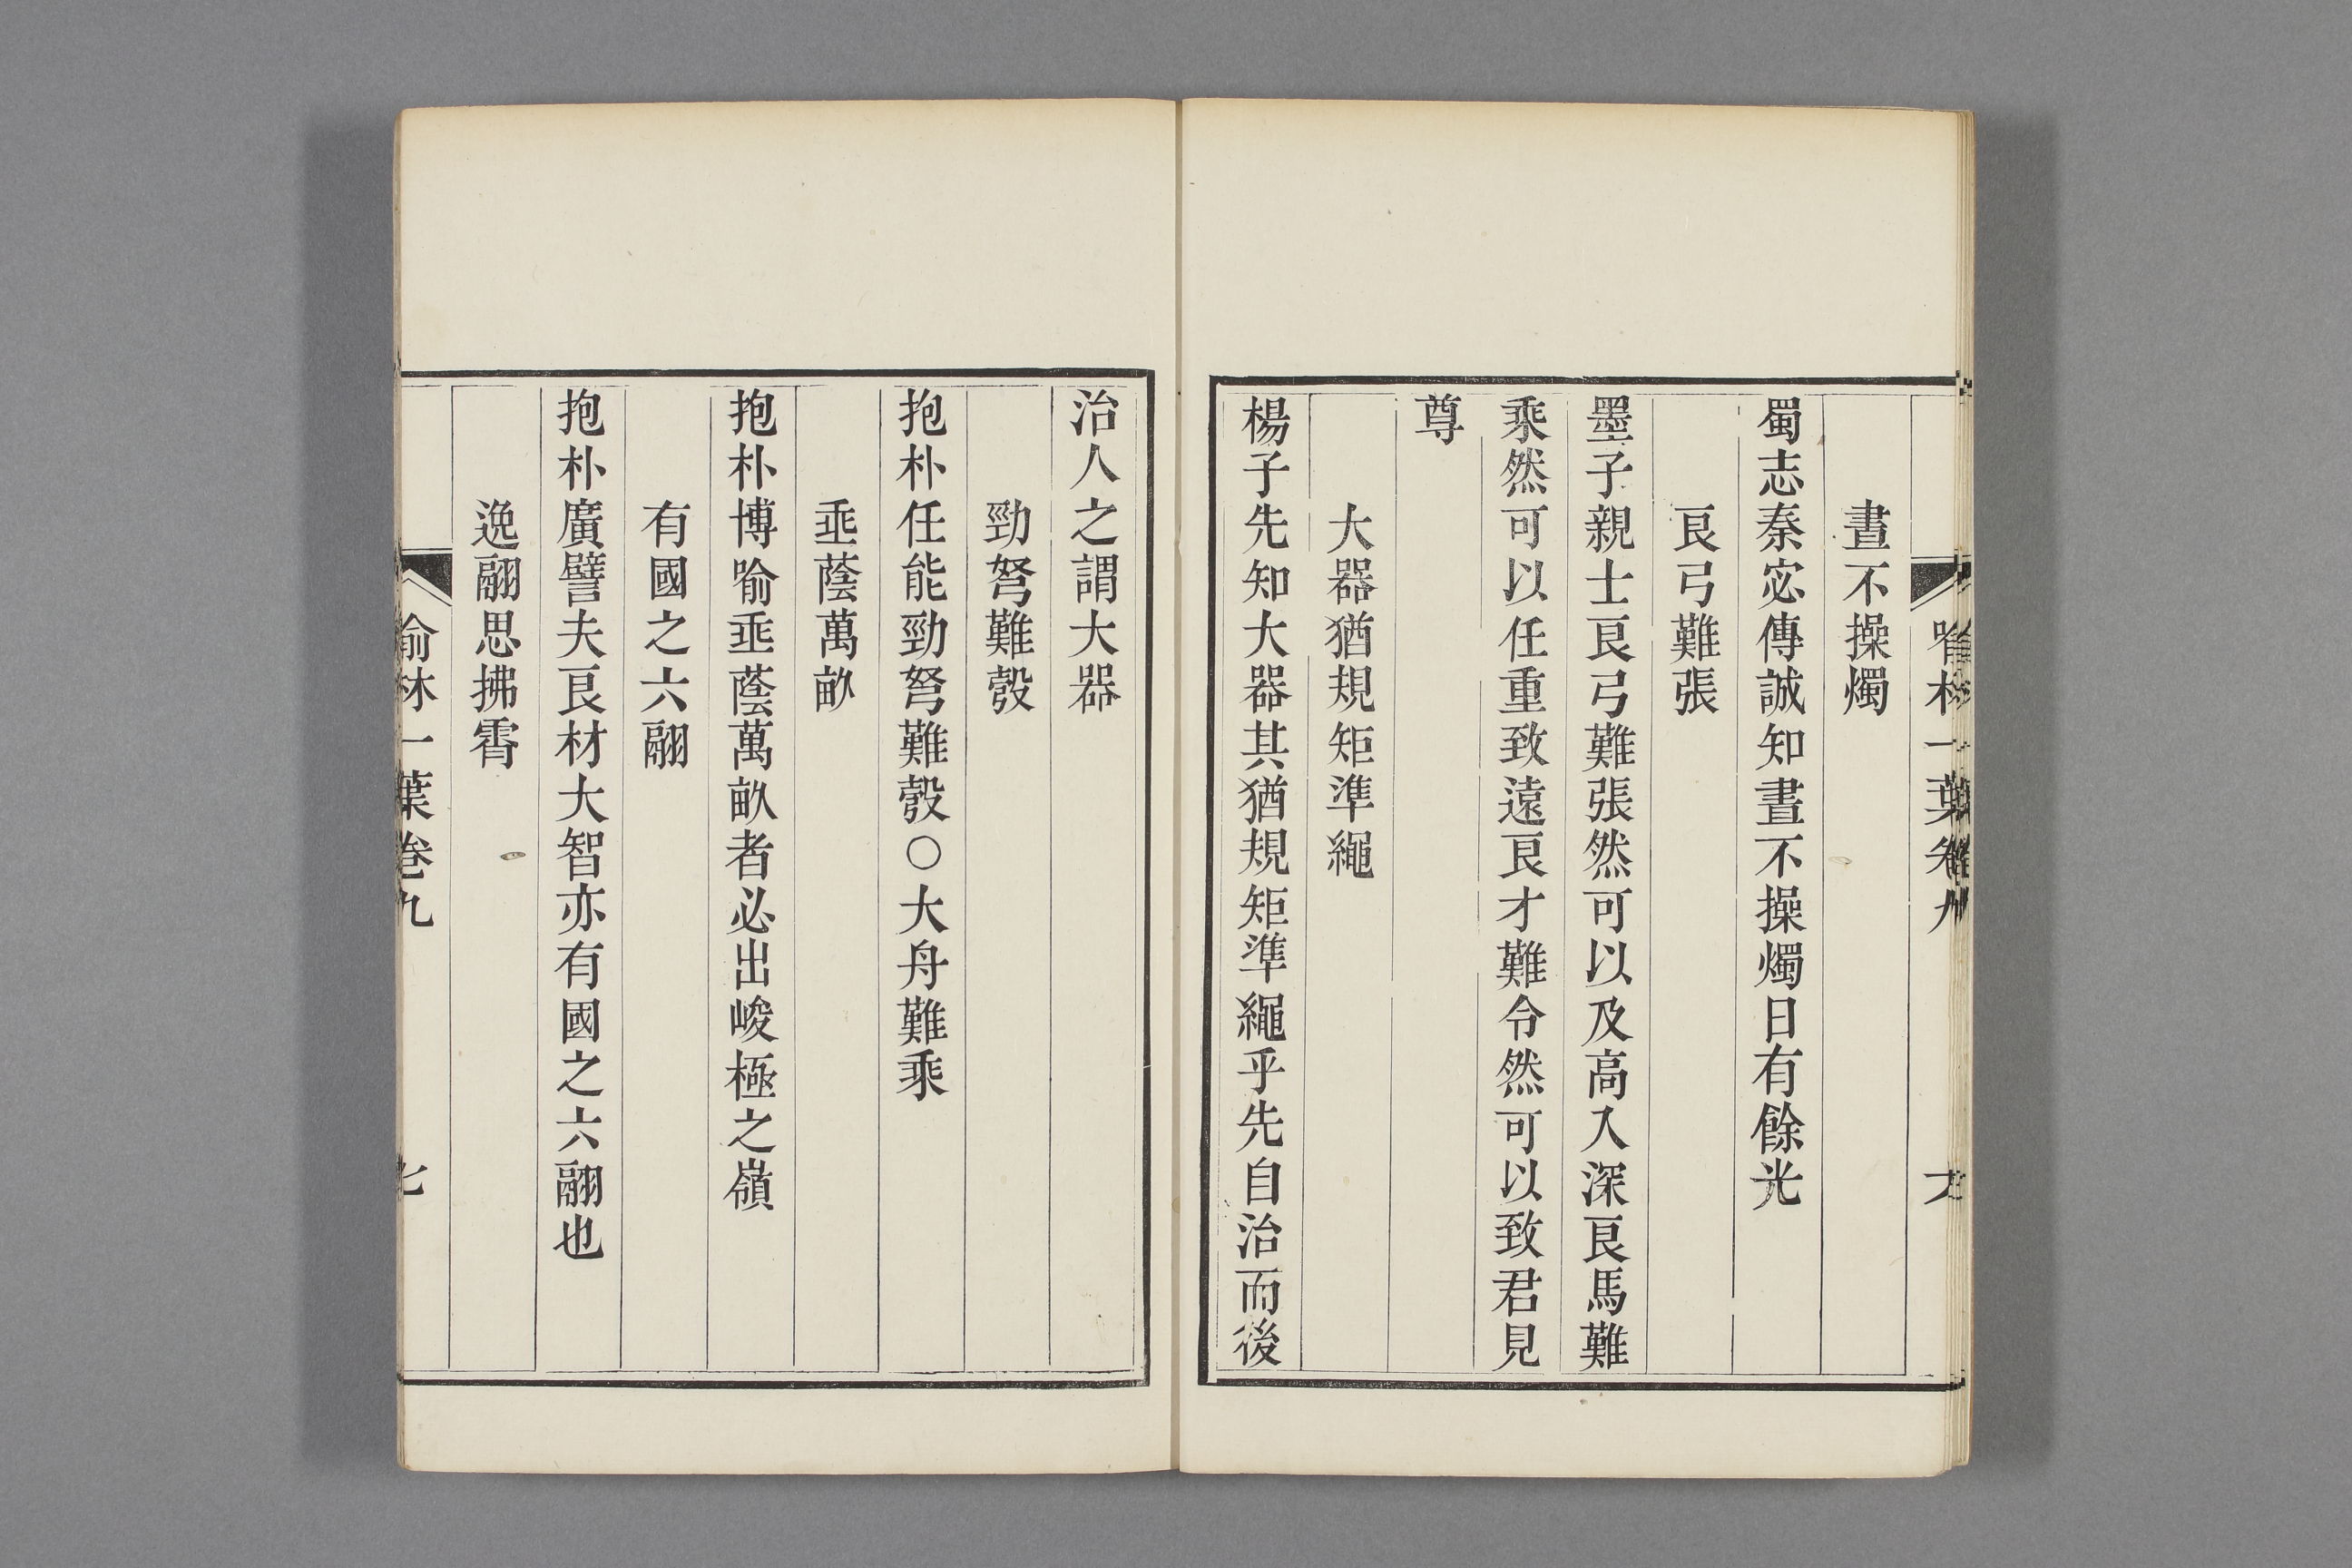 晝不操燭
蜀志秦宓傳誠知晝不操燭日有餘光
良弓難張
墨子親士良弓難張然可以及高入深良馬難
乘然可以任重致遠良才難令然可以致君見
尊
大器猶規矩準繩
楊子先知大器其猶規矩準繩乎先自治而後
治人之謂大器
勁弩難彀
抱朴任能勁弩難彀〇大舟難乘
垂蔭萬畝
抱朴博喻垂蔭萬畝者必出峻極之嶺
有國之六翮
抱朴廣譬夫良材大智亦有國之六翮也
逸翮思拂霄
喻林一葉卷九
七